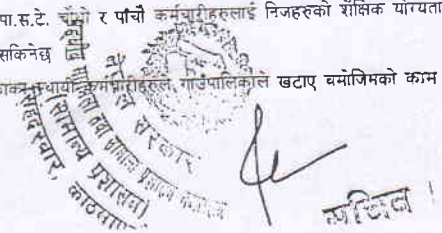 पा.स.टे. चौंथो र पाँचौ कर्मचारीहरुलाई निजहरुको शैक्षिक योग्यता
सकिनेछ
स्थायी कर्मचारीहरुले गाउँपालिकाले खटाए वमोजिमको काम
नेपाल सरकार
संघीय मामिला तथा सामान्य प्रशासन मन्त्रालय
(सामान्य प्रशासन)
सिंहदरवार, काठमाडौं
सचिव